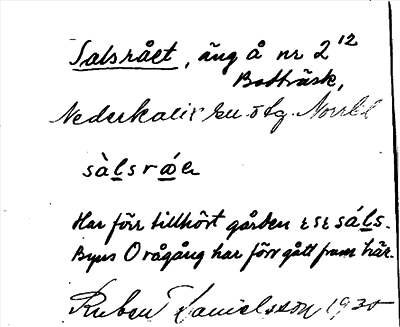 Salsrået, äng å nr 2¹²
Bottträsk,
Nederkalix sn. ö tg. Norrb l
sàl̲sráe
Har förr tillhört gården ɛsɛ sál̲s.
Byns O rågång har förr gått fram här.
Ruben Danielsson 1930